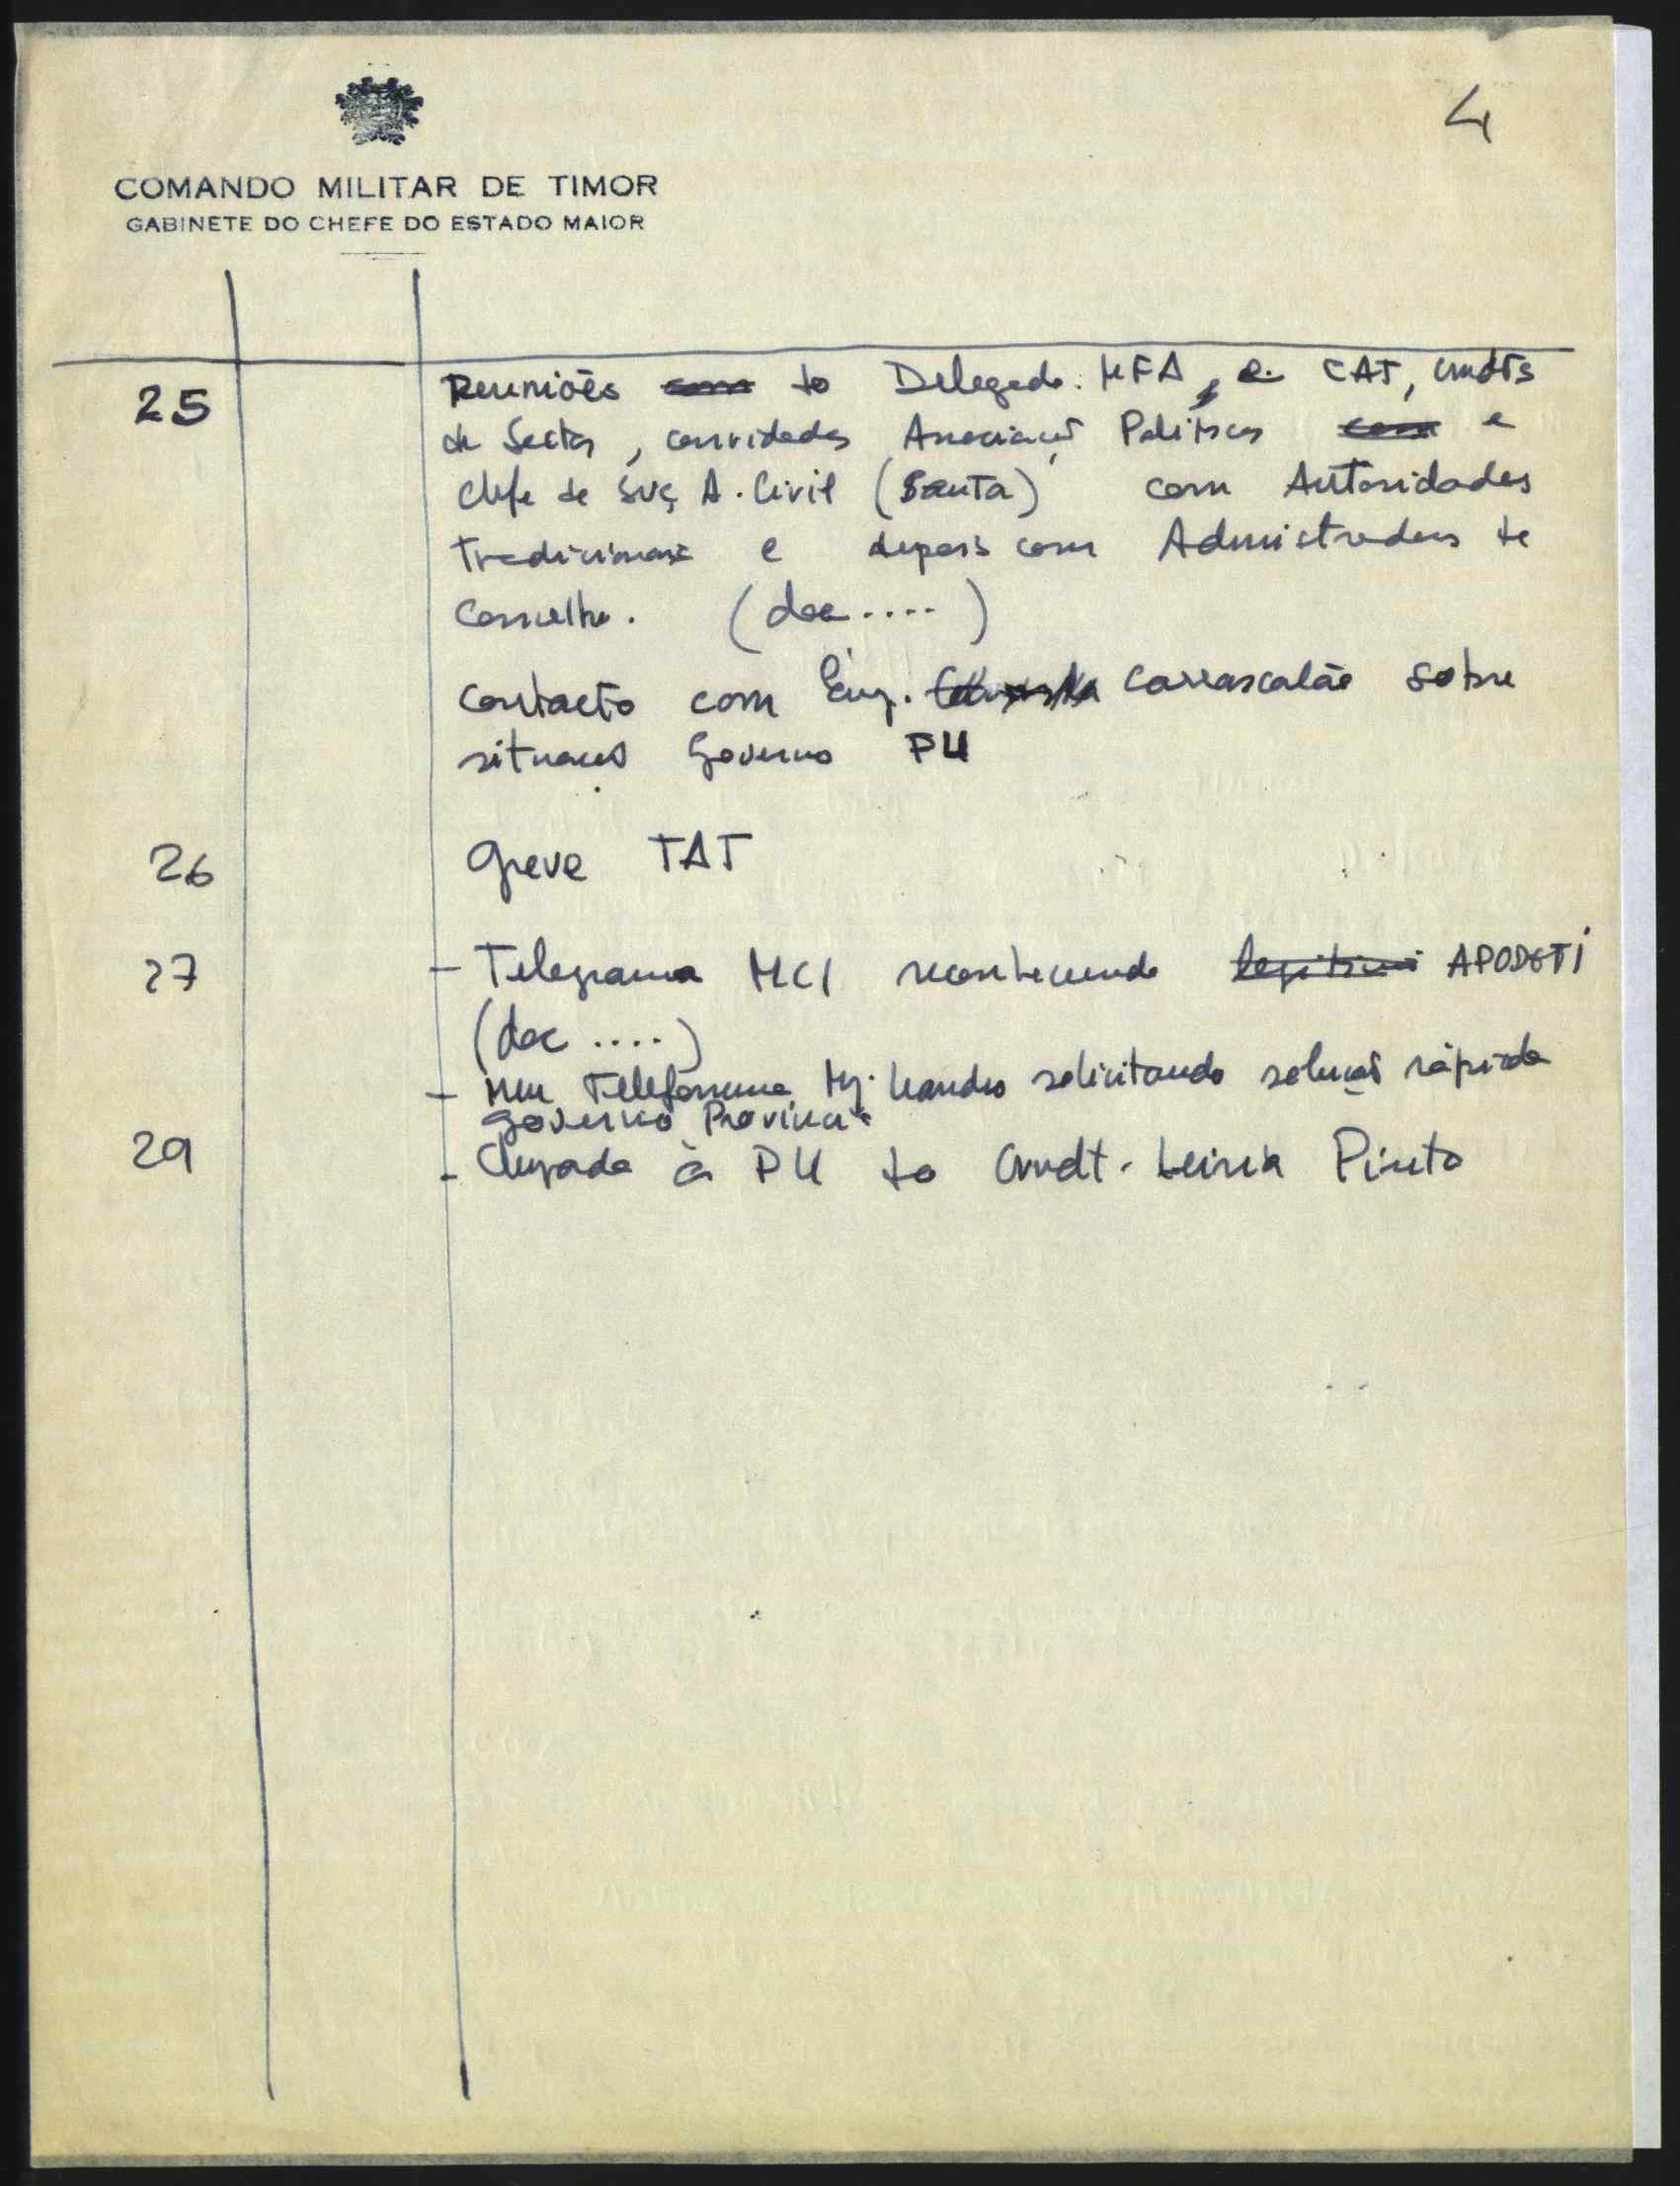 4
COMANDO MILITAR DE TIMOR
GABINETE DO CHEFE DO ESTADO MAIOR
25
Reuniões com do Delegado. MFA, e CAT, cmdts
de Sector, convidados Associações Políticas com e
Chefe de Svç A. Civil (Santa) com Autoridades
Tradicionais e depois com Administradores de
Concelho. (doc....)
Contacto com Eng. Carrascalão sobre
situação Governo PU
26 Greve TAT
27 - Telegrama MCI reconhecendo legitimi APODETI
(doc ....)
- Meu Telefonema Mj. Leandro solicitando solução rápida
Governo Provincia
29 - Chegada à PU do Cmdt. Leiria Pinto